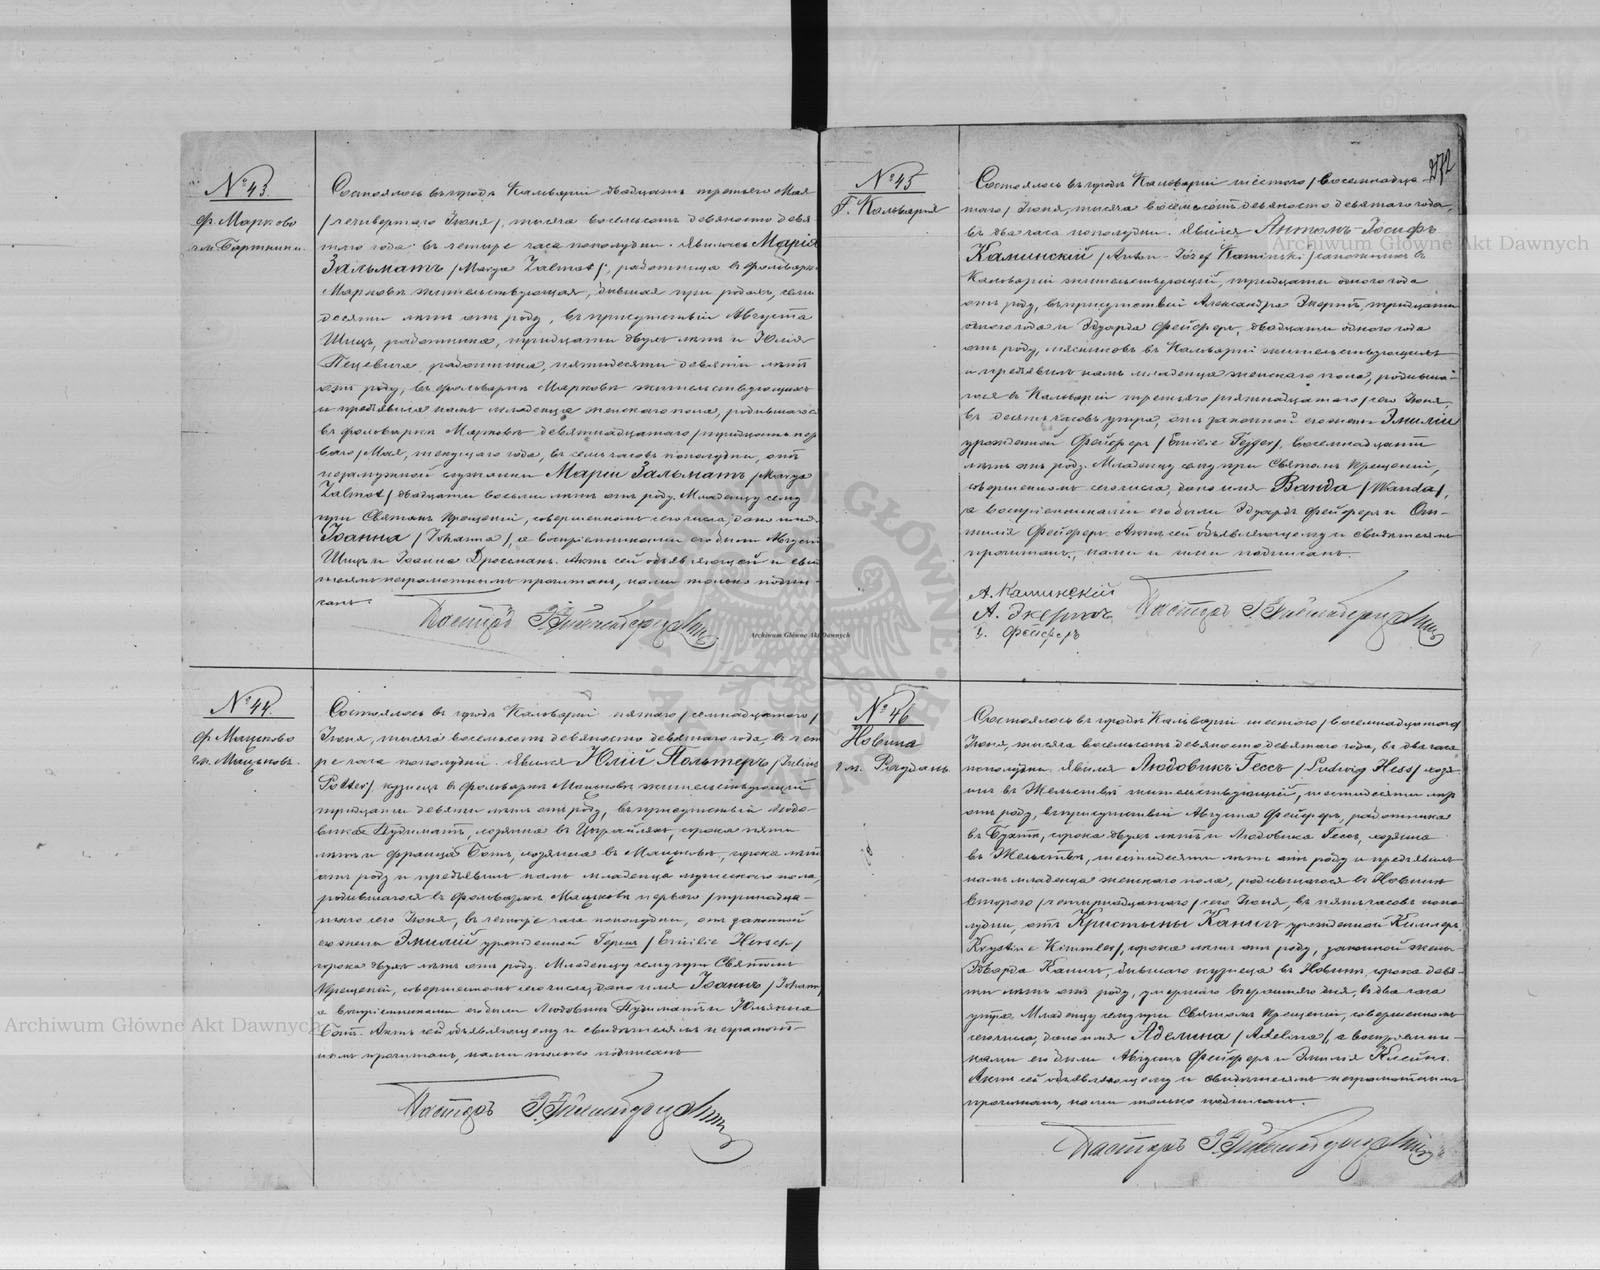 № 43.
ф. Марково
гм. Барткини.
Состоялось въ городѣ Кальваріи двадцать третьяго Мая
/четвертаго Іюня/, тысяча восемьсотъ девяносто девя-
таго года въ четыре часа пополудни. Явилась Марія
Зальматъ /Marya Zalmat/, работница въ фольварке
Марковѣ жительствующая, бывшая при родахъ, семи-
десяти лѣтъ отъ роду, въ присутствіи Августа
Шицъ, работника, тридцати двухъ лѣтъ и Юлія
работника, пятидесяти девяти лѣтъ
отъ роду, въ фольваркѣ Марковѣ жительствующихъ
и предъявила намъ младенца женскаго пола, родившагося
въ фольваркѣ Марковѣ девятнадцатаго /тридцать пер
ваго/ Мая, текущаго года, въ семь часовъ пополудни, отъ
незамужной служанки Маріи Зальматъ /Marya
Zalmat/ двадцати восьми лѣтъ отъ роду. Младенцу сему
при Святомъ Крещеніи, совершенномъ сего числа, дано имя
Іоанна /Johanna/, а воспріемниками его были Августъ
Шицъ и Іоанна Дросманъ. Актъ сей объявляющей и сви
телямъ неграмотнымъ прочитанъ, нами только подпи-
санъ.
Пасторъ
№ 44.
ф. Мацково
гм. Мацьковъ.
Состоялось въ городѣ Кальваріи пятаго /семнадцатаго/
Іюня, тысяча восемьсотъ девяносто девятаго года, въ четы
ре часа пополудни. Явился Юлій Польтеръ /Julius
Potter/ кузнецъ въ фольварке Мацковѣ жительствующій
тридцати девяти лѣтъ отъ роду, въ присутствіи Людо-
вика хозяина въ сорока пяти
лѣтъ и Франца хозяина въ Мацковѣ, сорока лѣтъ
отъ роду и предъявилъ намъ младенца мужескаго пола,
родившагося въ фольваркѣ Мацковѣ перваго /тринадца-
таго/ сего Іюня, въ четыре часа пополудни, отъ законной
его жены Эмиліи урожденной Гершъ /Emilie Hersch/
сорока двухъ лѣтъ отъ роду. Младенцу сему при Святомъ
Крещеніи, совершенномъ сего числа, дано имя Іоаннъ /Johann/
а воспріемниками его были Людовикъ и Юльянна
Актъ сей объявляющему и свидѣтелямъ неграмот-
нымъ прочитанъ, нами только подписанъ
Пасторъ
272
№ 45
Г. Кальварія
Состоялось въ городѣ Кальваріи шестого /восемнадца-
таго/ Іюня, тысяча восемьсотъ девяносто девятаго года,
въ два часа пополудни. Явился Антонъ-Іосифъ
Каминскій /Anton-Józef Kaminski/ сапожникъ въ
Кальваріи жительствующій, тридцати одного года
отъ роду, въ присутствіи Александра Экертъ, тридцати
одного года и Эдуарда Фейферъ, двадцати одного года
отъ роду, мясниковъ въ Кальваріи жительствующихъ
и предъявилъ намъ младенца женскаго пола, родивша-
гося въ Кальваріи третьяго /пятнадцатаго/ сего Іюня,
въ десять часовъ утра, отъ законной его жены Эмиліи
урожденной Фейферъ /Emilie Fejfer/, восемнадцати
лѣтъ отъ роду. Младенцу сему при Святомъ Крещеніи,
совершенномъ сего числа, дано имя Ванда /Wanda/,
а воспріемниками его были Эдуардъ Фейферъ и От-
тилія Фейферъ. Актъ сей объявляющему и свидѣтелямъ
прочитанъ, нами и ими подписанъ.
А. Каминскій
А. Экертъ
Фейферъ
Пасторъ
№ 46
Новина
гм. Раудань.
Состоялось въ городѣ Кальваріи шестого /восемнадцатаго/
Іюня, тысяча восемьсотъ девяносто девятаго года, въ два часа
пополудни. Явился Людовикъ Гессъ /Ludwig Hess/ хозя-
инъ въ Жельствѣ жительствующій, шестидесяти лѣтъ
отъ роду, въ присутствіи Августа Фейферъ, работника
въ сорока двухъ лѣтъ и Людовика Гессъ, хозяина
въ Жельствѣ, шестидесяти лѣтъ отъ роду и предъявилъ
намъ младенца женскаго пола, родившагося въ Новинѣ
второго /четырнадцатаго/ сего Іюня, въ пять часовъ попо-
лудни, отъ Кристыны Канигъ урожденной Киммлеръ
Krystine Kimmler/, сорока лѣтъ отъ роду, законной жены
Эдварда Канигъ, бывшаго кузнеца въ Новинѣ, сорока девя-
ти лѣтъ отъ роду, умершаго вчерашняго дня, въ два часа
утра. Младенцу сему при Святомъ Крещеніи, совершенномъ
сего числа, дано имя Аделина /Adelina/, а воспріемни-
ками его были Августъ Фейферъ и Эмилія Клейнъ.
Актъ сей объявляющему и свидѣтелямъ неграмотнымъ
прочитанъ, нами только подписанъ.
Пасторъ
Archiwum Główne Akt Dawnych
Archiwum Główne Akt Dawnych
Archiwum Główne Akt Dawnych